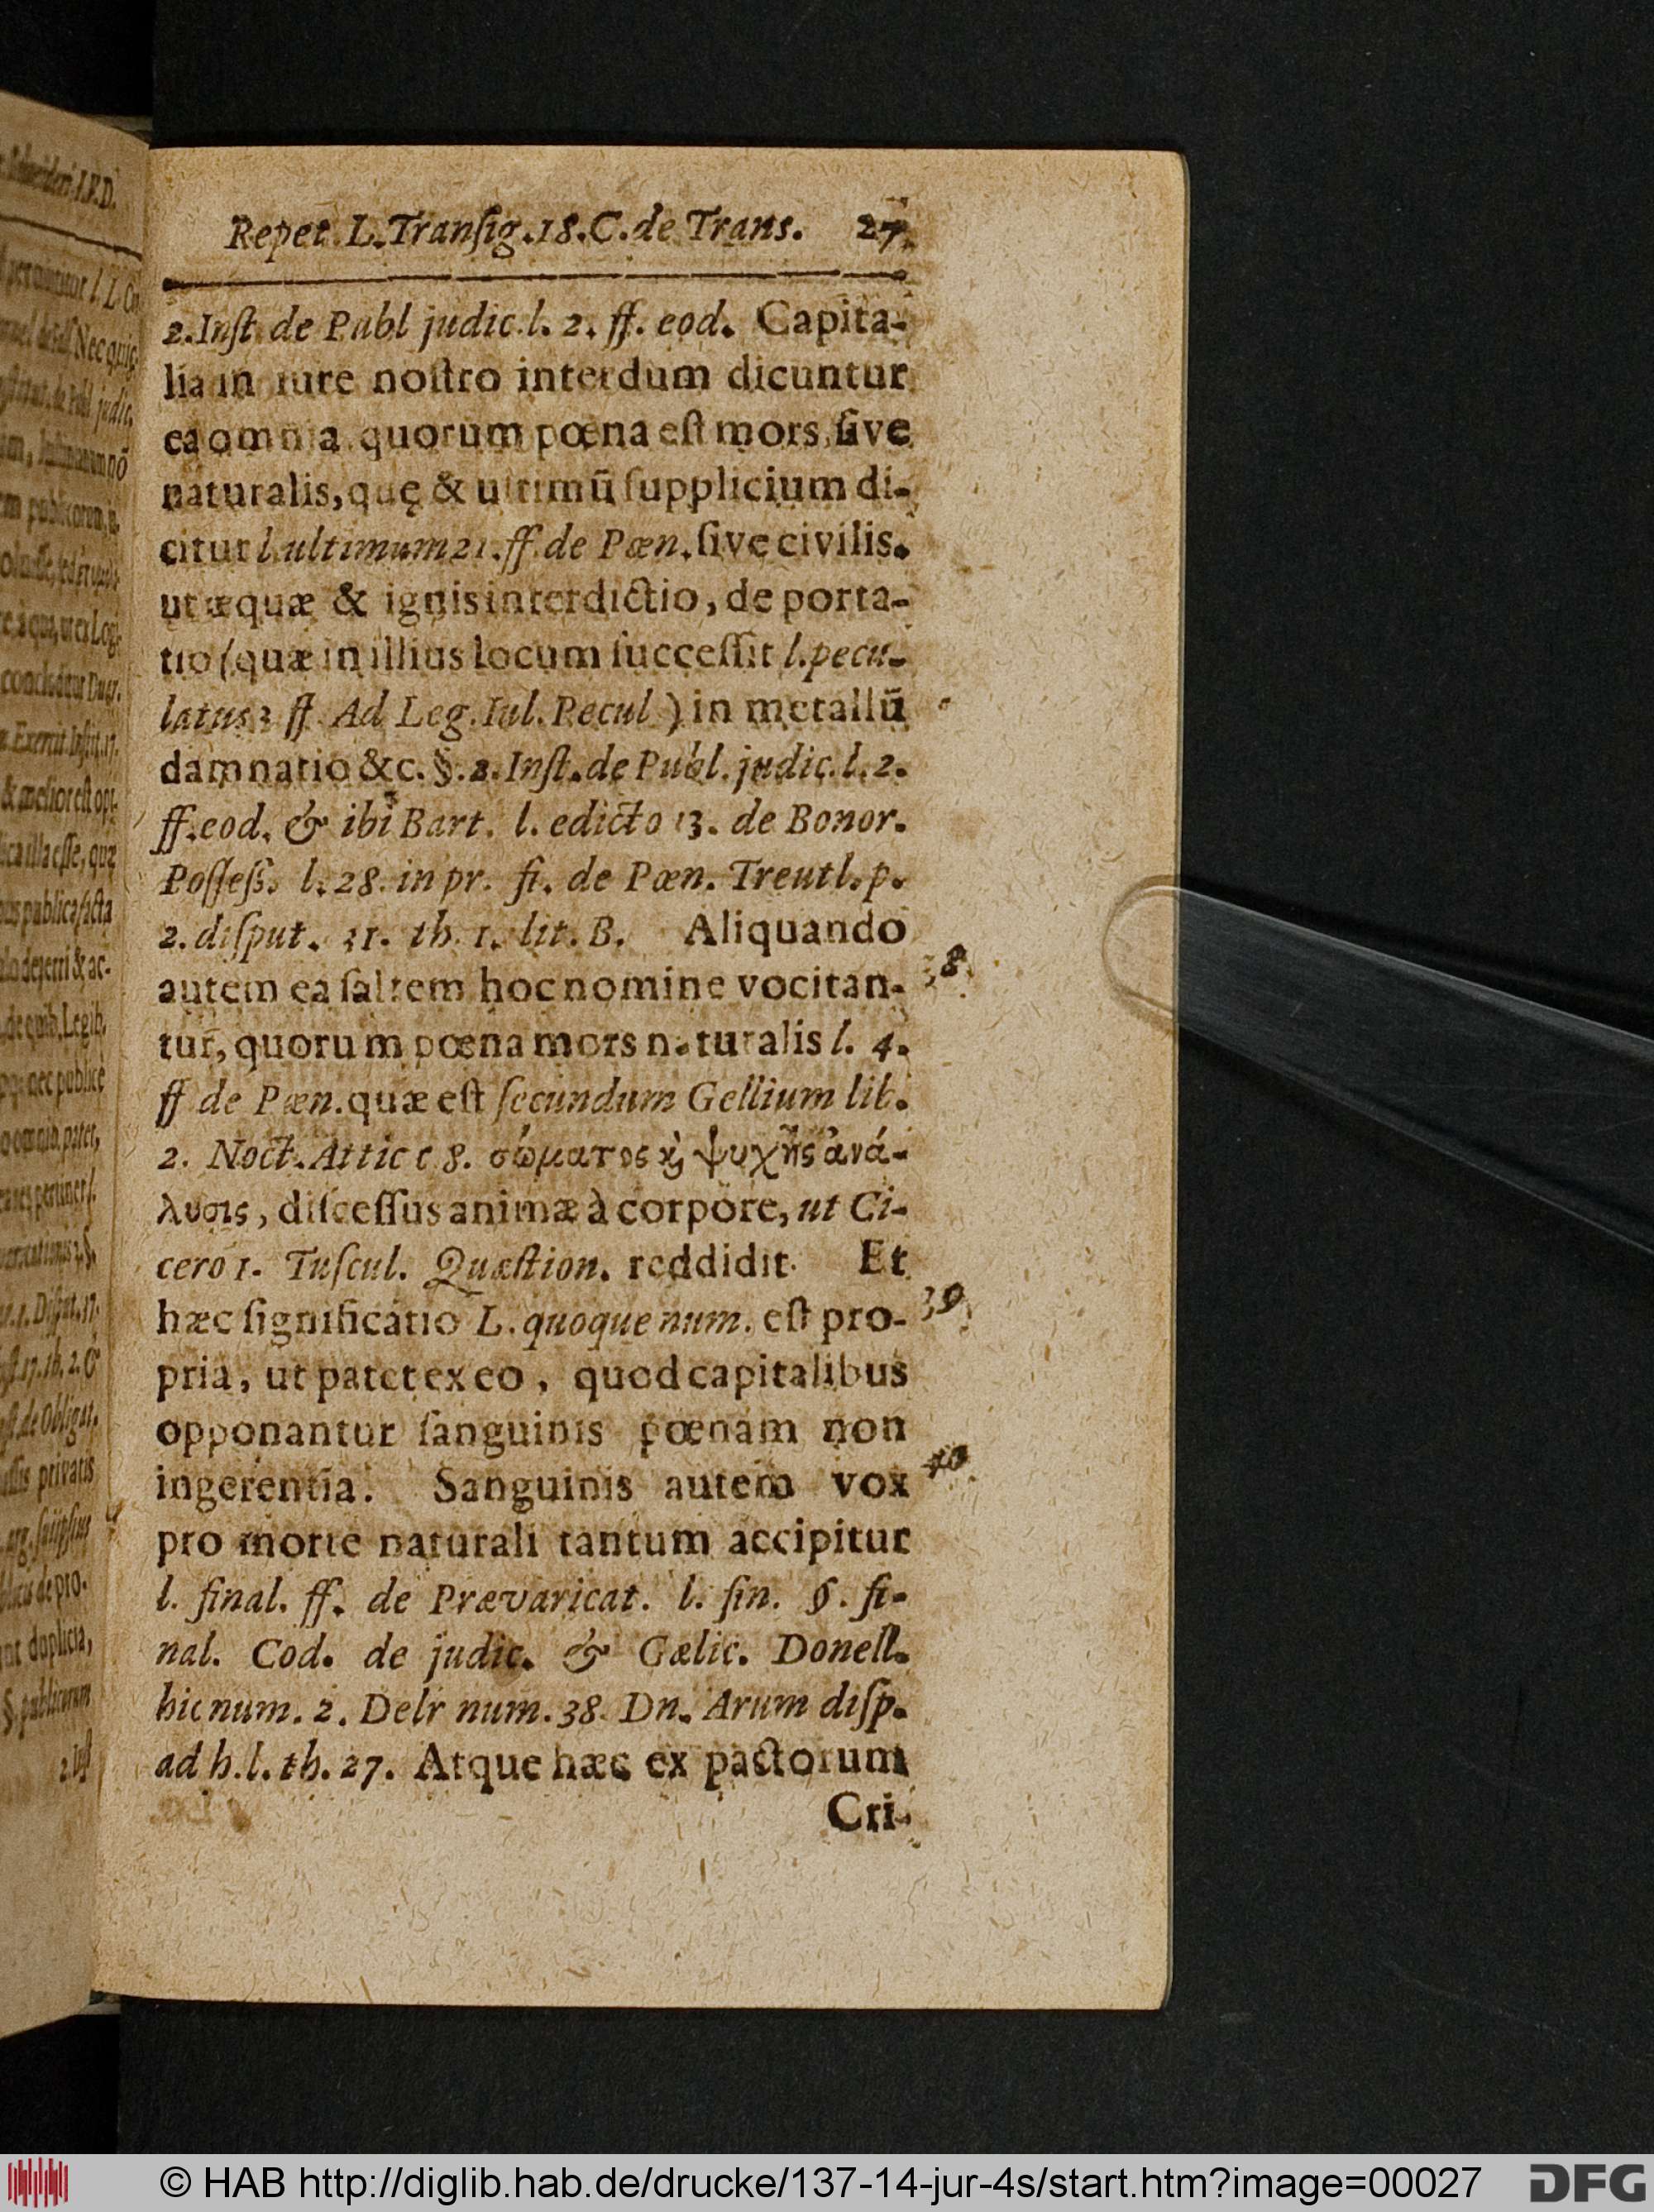 Repet. L. Tranſig. 18. C. de Trans. 27
2. Inſt. de Publ judic. l. 2. ff. eod. Capita-
lia in iure noſtro interdum dicuntur
ea omnia quorum pœna eſt mors, ſive
naturalis, quę & ultimū ſupplicium di-
citur l. ultimum 21. ff. de Pœn. ſive civilis.
ut æquæ & ignis interdictio, de porta-
tio (quæ in illius locum ſucceſſit l. pecu-
latus 3 ff. Ad Leg. Iul. Pecul.) in metallū
damnatio &c. §. 2. Inſt. de Publ. judic. l. 2.
ff. eod. & ibi Bart. l. edicto 13. de Bonor.
Poſſeſſ. l. 28. in pr. ff. de Pœn. Treutl. p.
2. diſput. 31. th. 1. lit. B. Aliquando
autem ea ſaltem hoc nomine vocitan- 38.
tur, quorum pœna mors naturalis l. 4.
ff de Pœn. quæ eſt ſecundum Gellium lib.
2. Noct. Attic c 8. σώματος ϗ ψυχῆς ἀνά-
λυσις, diſceſſus animæ à corpore, ut Ci-
cero 1. Tuſcul. Quæſtion. reddidit. Et
hæc ſignificatio L. quoque num. eſt pro- 39.
pria, ut patet ex eo, quod capitalibus
opponantur ſanguinis pœnam non
ingerentia. Sanguinis autem vox 40.
pro morte naturali tantum accipitur
l. final. ff. de Prævaricat. l. fin. §. fi-
nal. Cod. de judic. & Cælic. Donell.
hic num. 2. Delr num. 38. Dn. Arum diſp.
ad h. l. th. 27. Atque hæc ex pactorum
Cri-
© HAB http://diglib.hab.de/drucke/137-14-jur-4s/start.htm?image=00027
DFG